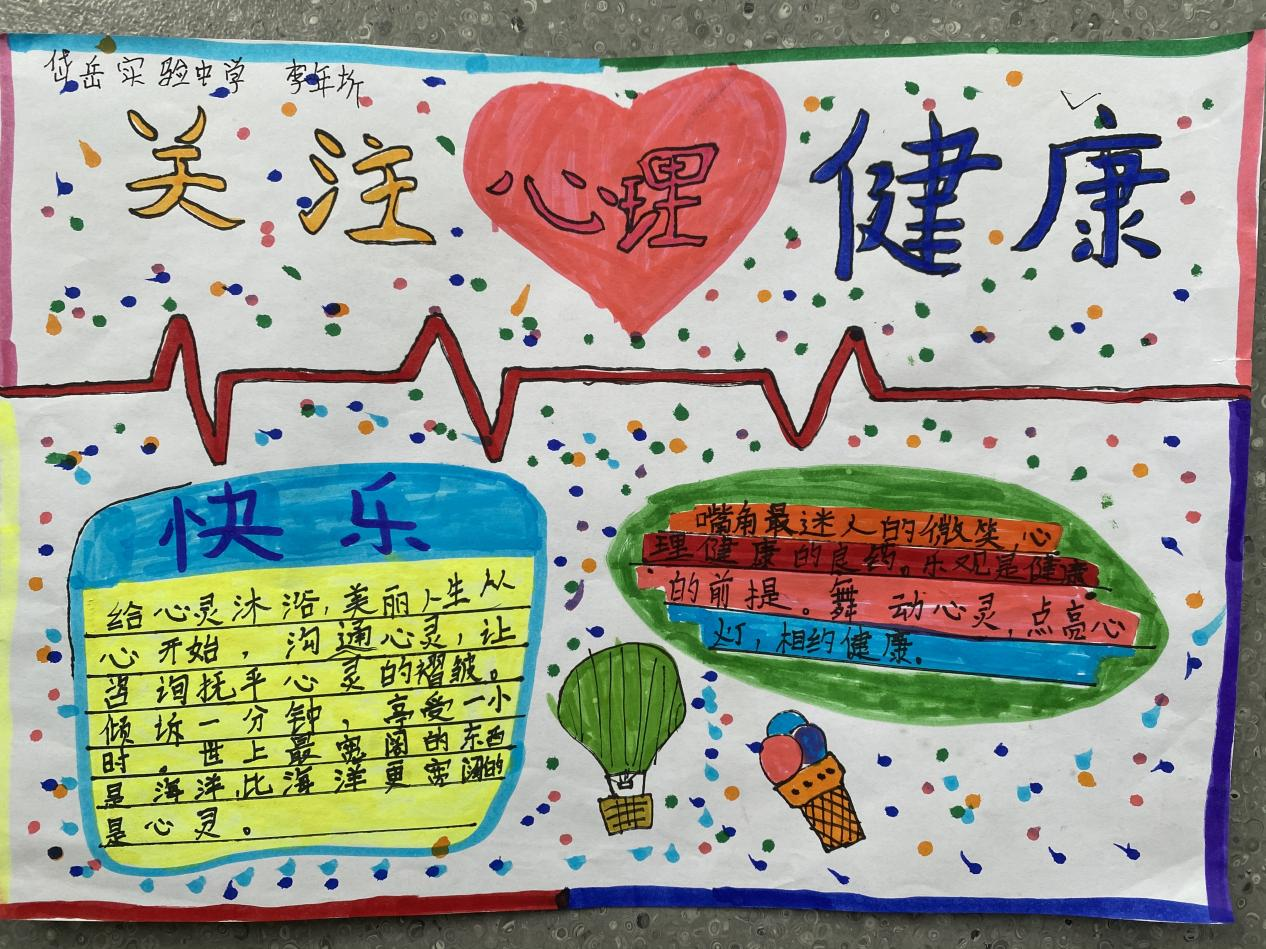 岱岳实验中学 李年圻
关注心理健康
快乐
给心灵沐浴,美丽人生从
心开始,沟通心灵,让
咨询抚平心灵的褶皱。
倾坼一分钟,享受一小
时。世上最宽阔的东西
是海洋,比海洋更宽阔的
是心灵。
嘴角最迷人的微笑心
理健康的良药。乐观是健康
的前提。舞动心灵,点亮心
灯,相约健康.